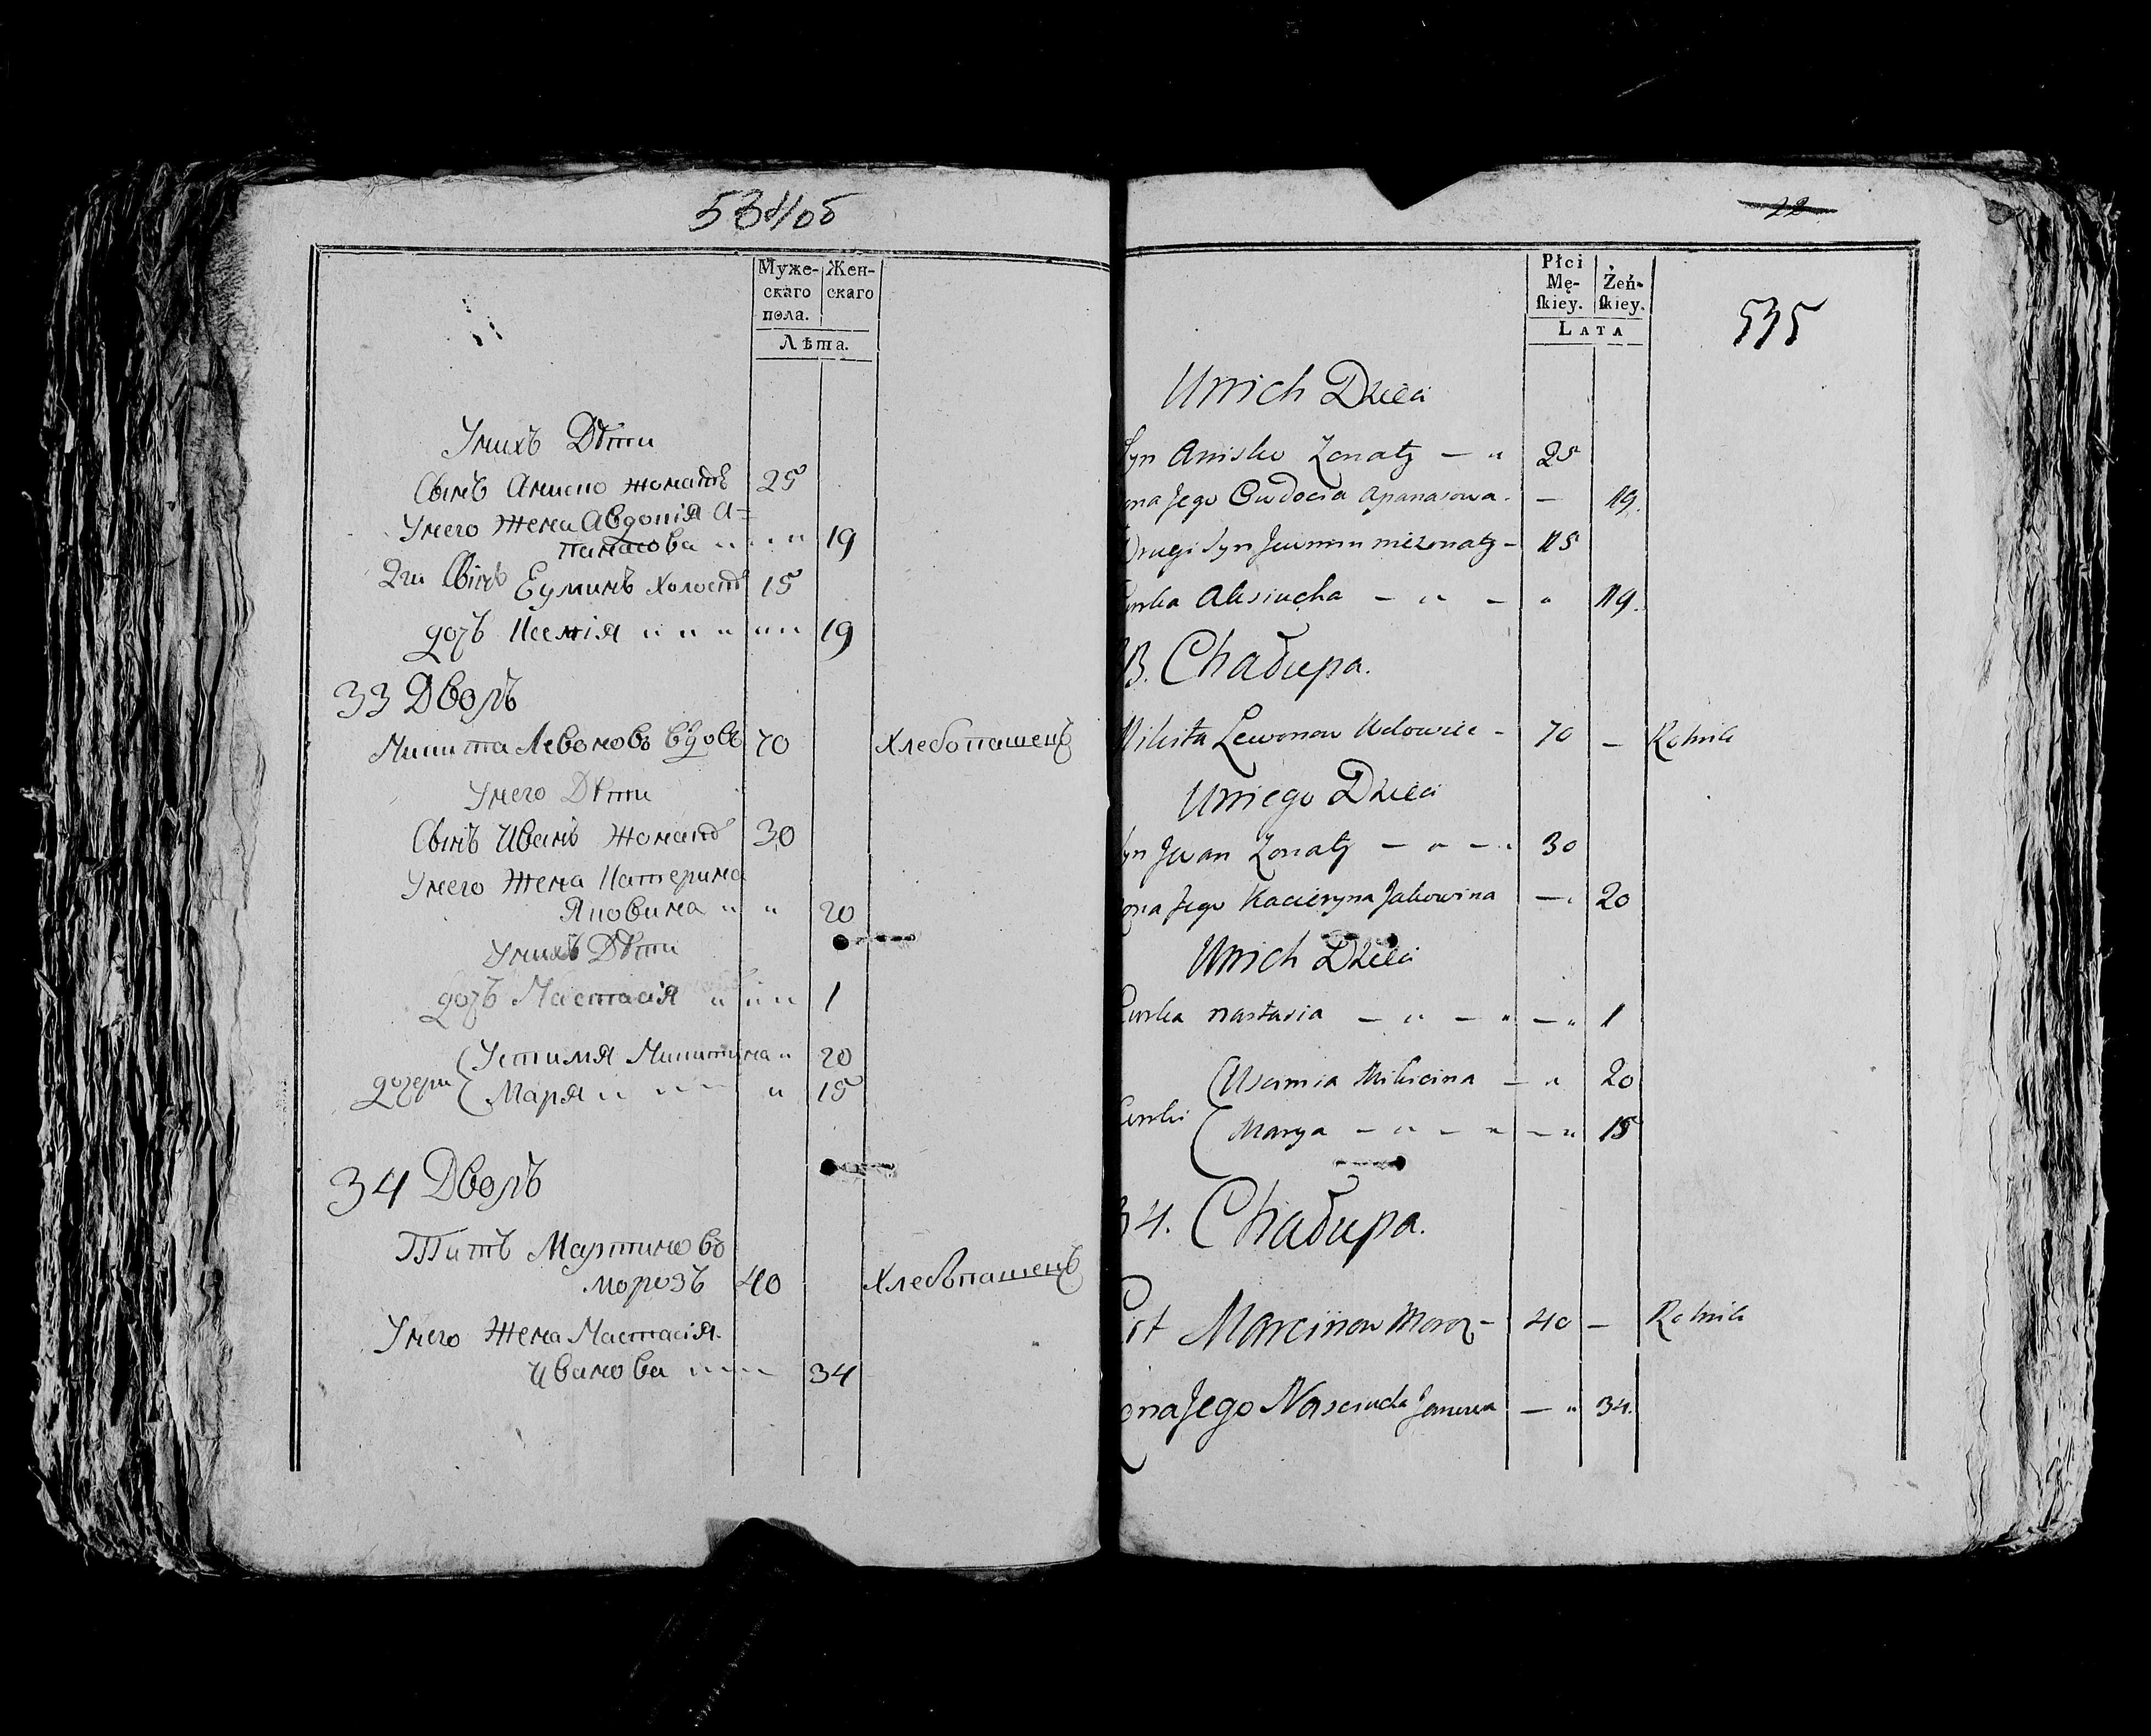 534/об
Муже-
скаго
пола.
Жен-
скаго
Лѣта.
Унихъ Дѣти
Сынъ Аниско жонатъ 25
Унего Жена Авдотія А-
панасова " " " 19
2й Сынъ Еуминъ холостъ 15
дочь Ксенія " " " " " 19
33 Дворъ
Микита Левоновъ вдовъ 70 Хлебопашецъ
Унего Дѣти
Сынъ Иванъ Жонатъ 30
Унего Жена Катерина
Яковина " " 20
Унихъ Дѣти
дочь Настасія " " " 1
дочери
Устимя Микитина " 20
Маря " " " " 15
34 Дворъ
Титъ Мартиновъ
морозъ 40 Хлебопашецъ
Унего Жена Настасія
Иванова " " " 34
22
535
Płci
Mę-
ſkiey.
Żeń-
ſkiey.
LATA
Unich Dzieci
Syn Anisko Zonaty — " 25
ona Jego Ewdocia Apanasowa. — 19.
Drugi Syn Jeumin niezonaty — 15
Curka Aksiucha — " — " 19.
33. Chałupa.
Mikita Lewonow Wdowiec - 70 — Rolnik
Uniego Dzieci
Syn Jwan Zonaty — " — " 30
ona Jego Kacieryna Jakowina — " 20
Unich Dzieci
Curka nastasia — " — " — " 1
Curki
Uscimia Mikicina — " 20
Marya — " — " — " 15
34. Chałupa.
Cit Marcinow Moroz - 40 — Rolnik
ona Jego Nasciucha Janowa — " 34.